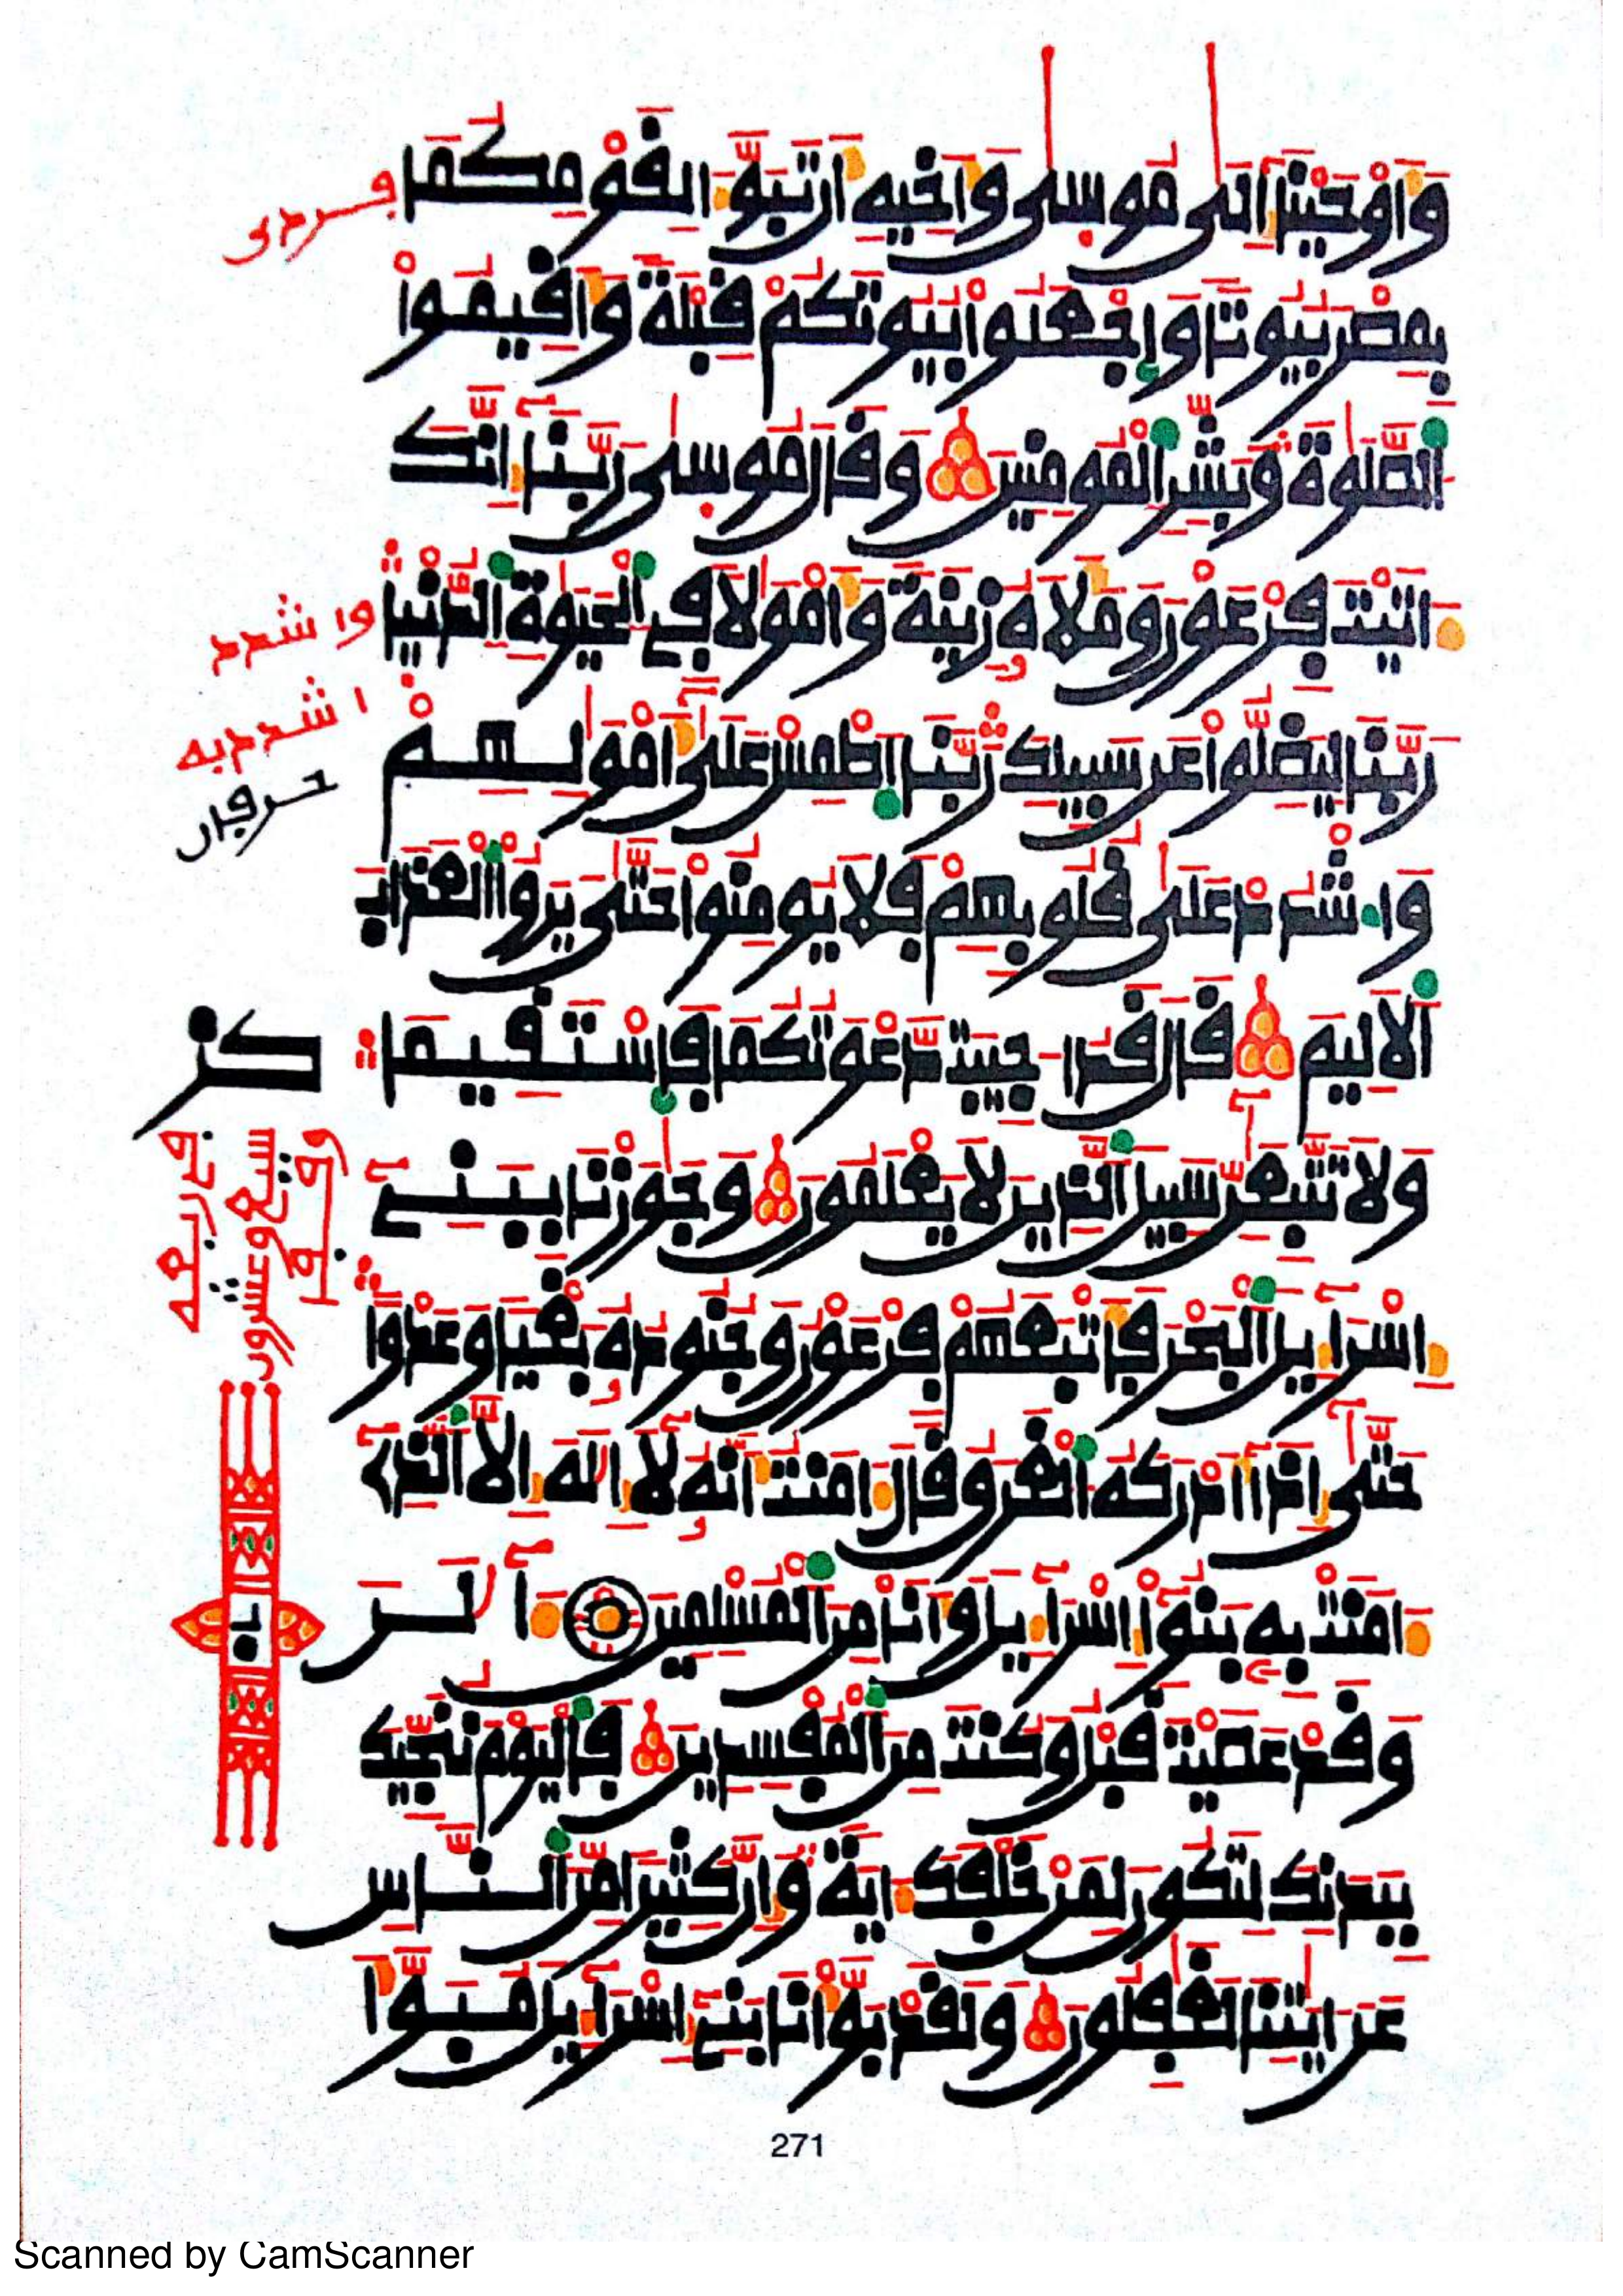 وَأَوْحَيْنَا إِلَىٰ مُوسَىٰ وَأَخِيهِ أَن تَبَوَّءَا لِقَوْمِكُمَا
بِمِصْرَ بُيُوتًا وَاجْعَلُوا بُيُوتَكُمْ قِبْلَةً وَأَقِيمُوا
الصَّلَوٰةَ وَبَشِّرِ الْمُومِنِينَ وَقَالَ مُوسَىٰ رَبَّنَا إِنَّكَ
ءَاتَيْتَ فِرْعَوْنَ وَمَلَأَهُ زِينَةً وَأَمْوَٰلًا فِي الْحَيَوٰةِ الدُّنْيَا
رَبَّنَا لِيَضِلُّوا عَن سَبِيلِكَ رَبَّنَا اطْمِسْ عَلَىٰ أَمْوَٰلِهِمْ
وَاشْدُدْ عَلَىٰ قُلُوبِهِمْ فَلَا يُومِنُوا حَتَّىٰ يَرَوُا الْعَذَابَ
الْأَلِيمَ قَالَ قَدْ أُجِيبَت دَّعْوَتُكُمَا فَاسْتَقِيمَا
وَلَا تَتَّبِعَٰنِّ سَبِيلَ الَّذِينَ لَا يَعْلَمُونَ وَجَٰوَزْنَا بِبَنِي
إِسْرَآءِيلَ الْبَحْرَ فَأَتْبَعَهُمْ فِرْعَوْنُ وَجُنُودُهُ بَغْيًا وَعَدْوًا
حَتَّىٰ إِذَا أَدْرَكَهُ الْغَرَقُ قَالَ ءَامَنتُ أَنَّهُ لَا إِلَٰهَ إِلَّا الَّذِي
ءَامَنَتْ بِهِ بَنُوا إِسْرَآءِيلَ وَأَنَا مِنَ الْمُسْلِمِينَ ءَآلَٰنَ
وَقَدْ عَصَيْتَ قَبْلُ وَكُنتَ مِنَ الْمُفْسِدِينَ فَالْيَوْمَ نُنَجِّيكَ
بِبَدَنِكَ لِتَكُونَ لِمَنْ خَلْفَكَ ءَايَةً وَإِنَّ كَثِيرًا مِّنَ النَّاسِ
عَنْ ءَايَٰتِنَا لَغَٰفِلُونَ وَلَقَدْ بَوَّأْنَا بَنِي إِسْرَآءِيلَ مُبَوَّأَ
وا شدد
ا شدد به
حرفان
271
Scanned by CamScanner